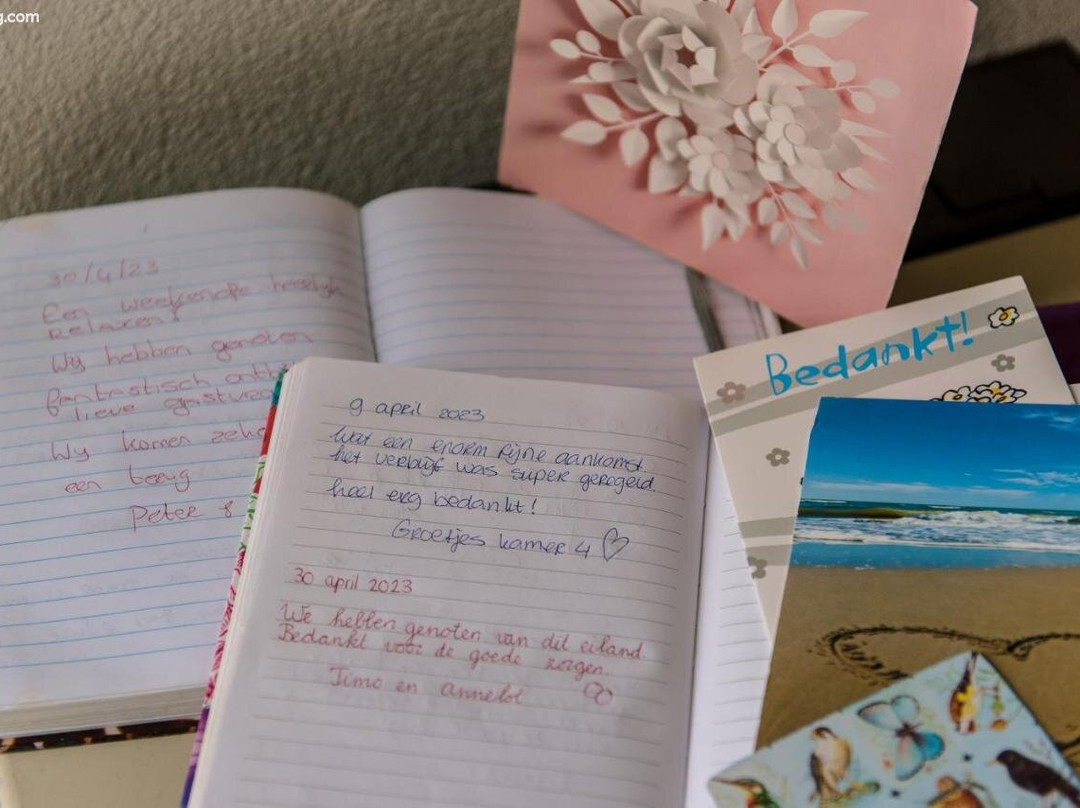 g.com
30/4/23
Een weekendje heerlijk
Relaxen!
Wij hebben genoten
fantastisch
lieve
Wij komen
een terug
Peter &
9 april 2023
Wat een enorm fijne aankomst
het verblijf was super geregeld.
heel erg bedankt!
Groetjes kamer 4
30 april 2023
We hebben genoten van dit eiland.
Bedankt voor de goede zorgen.
Timo en Annelot
Bedankt!